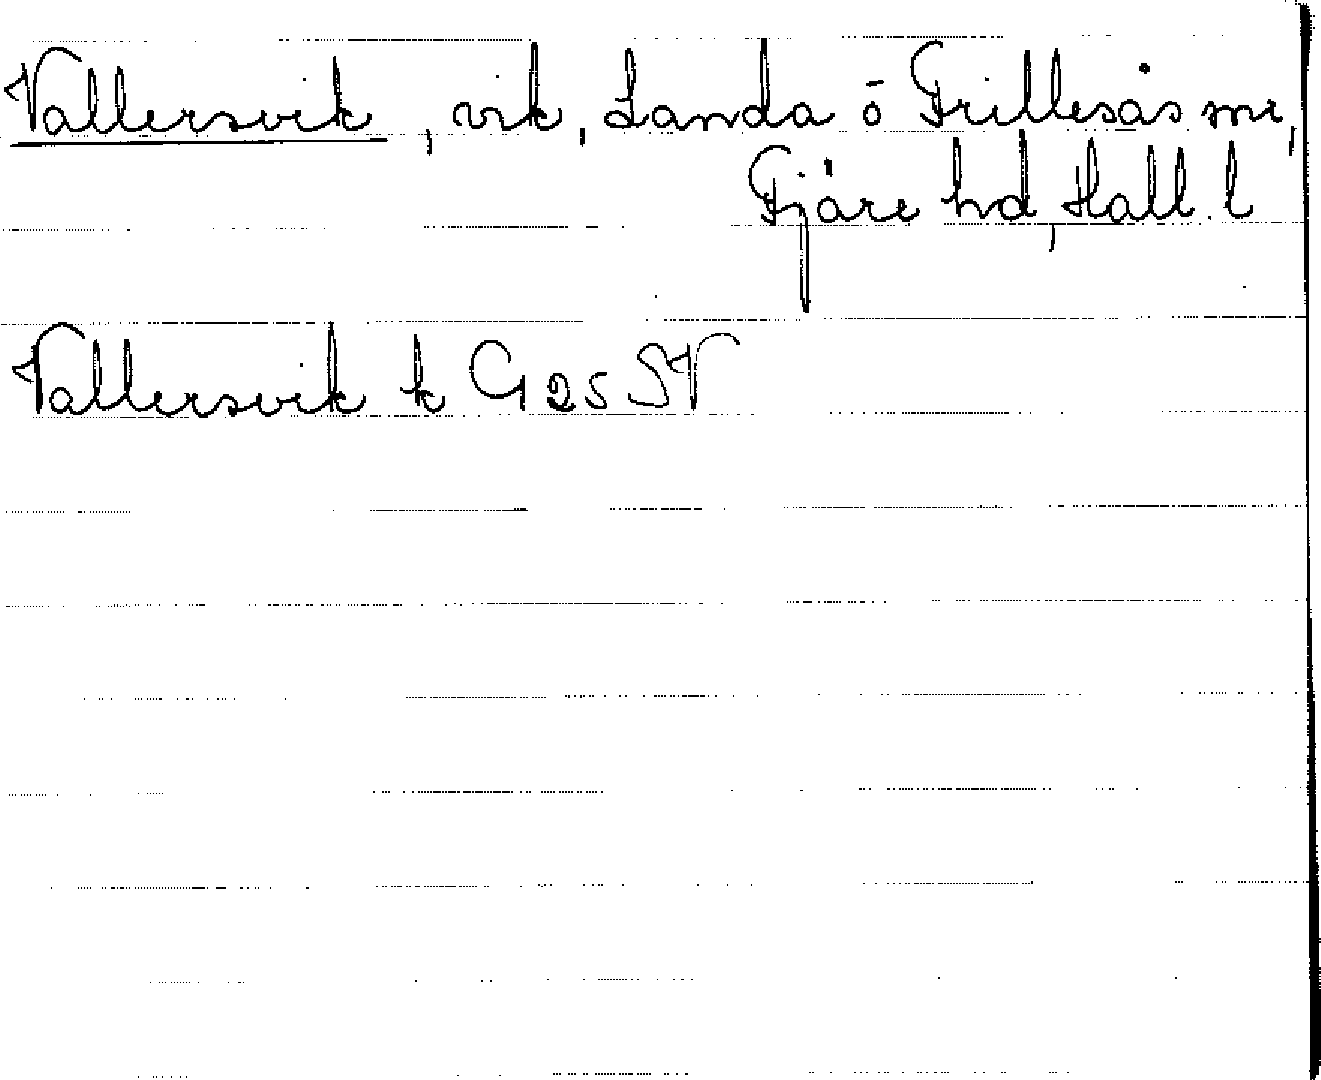 Vallersvik, vik, Landa o Frillesås snr,
Fjäre hd, Hall. l
Vallersvik k G 25 SV